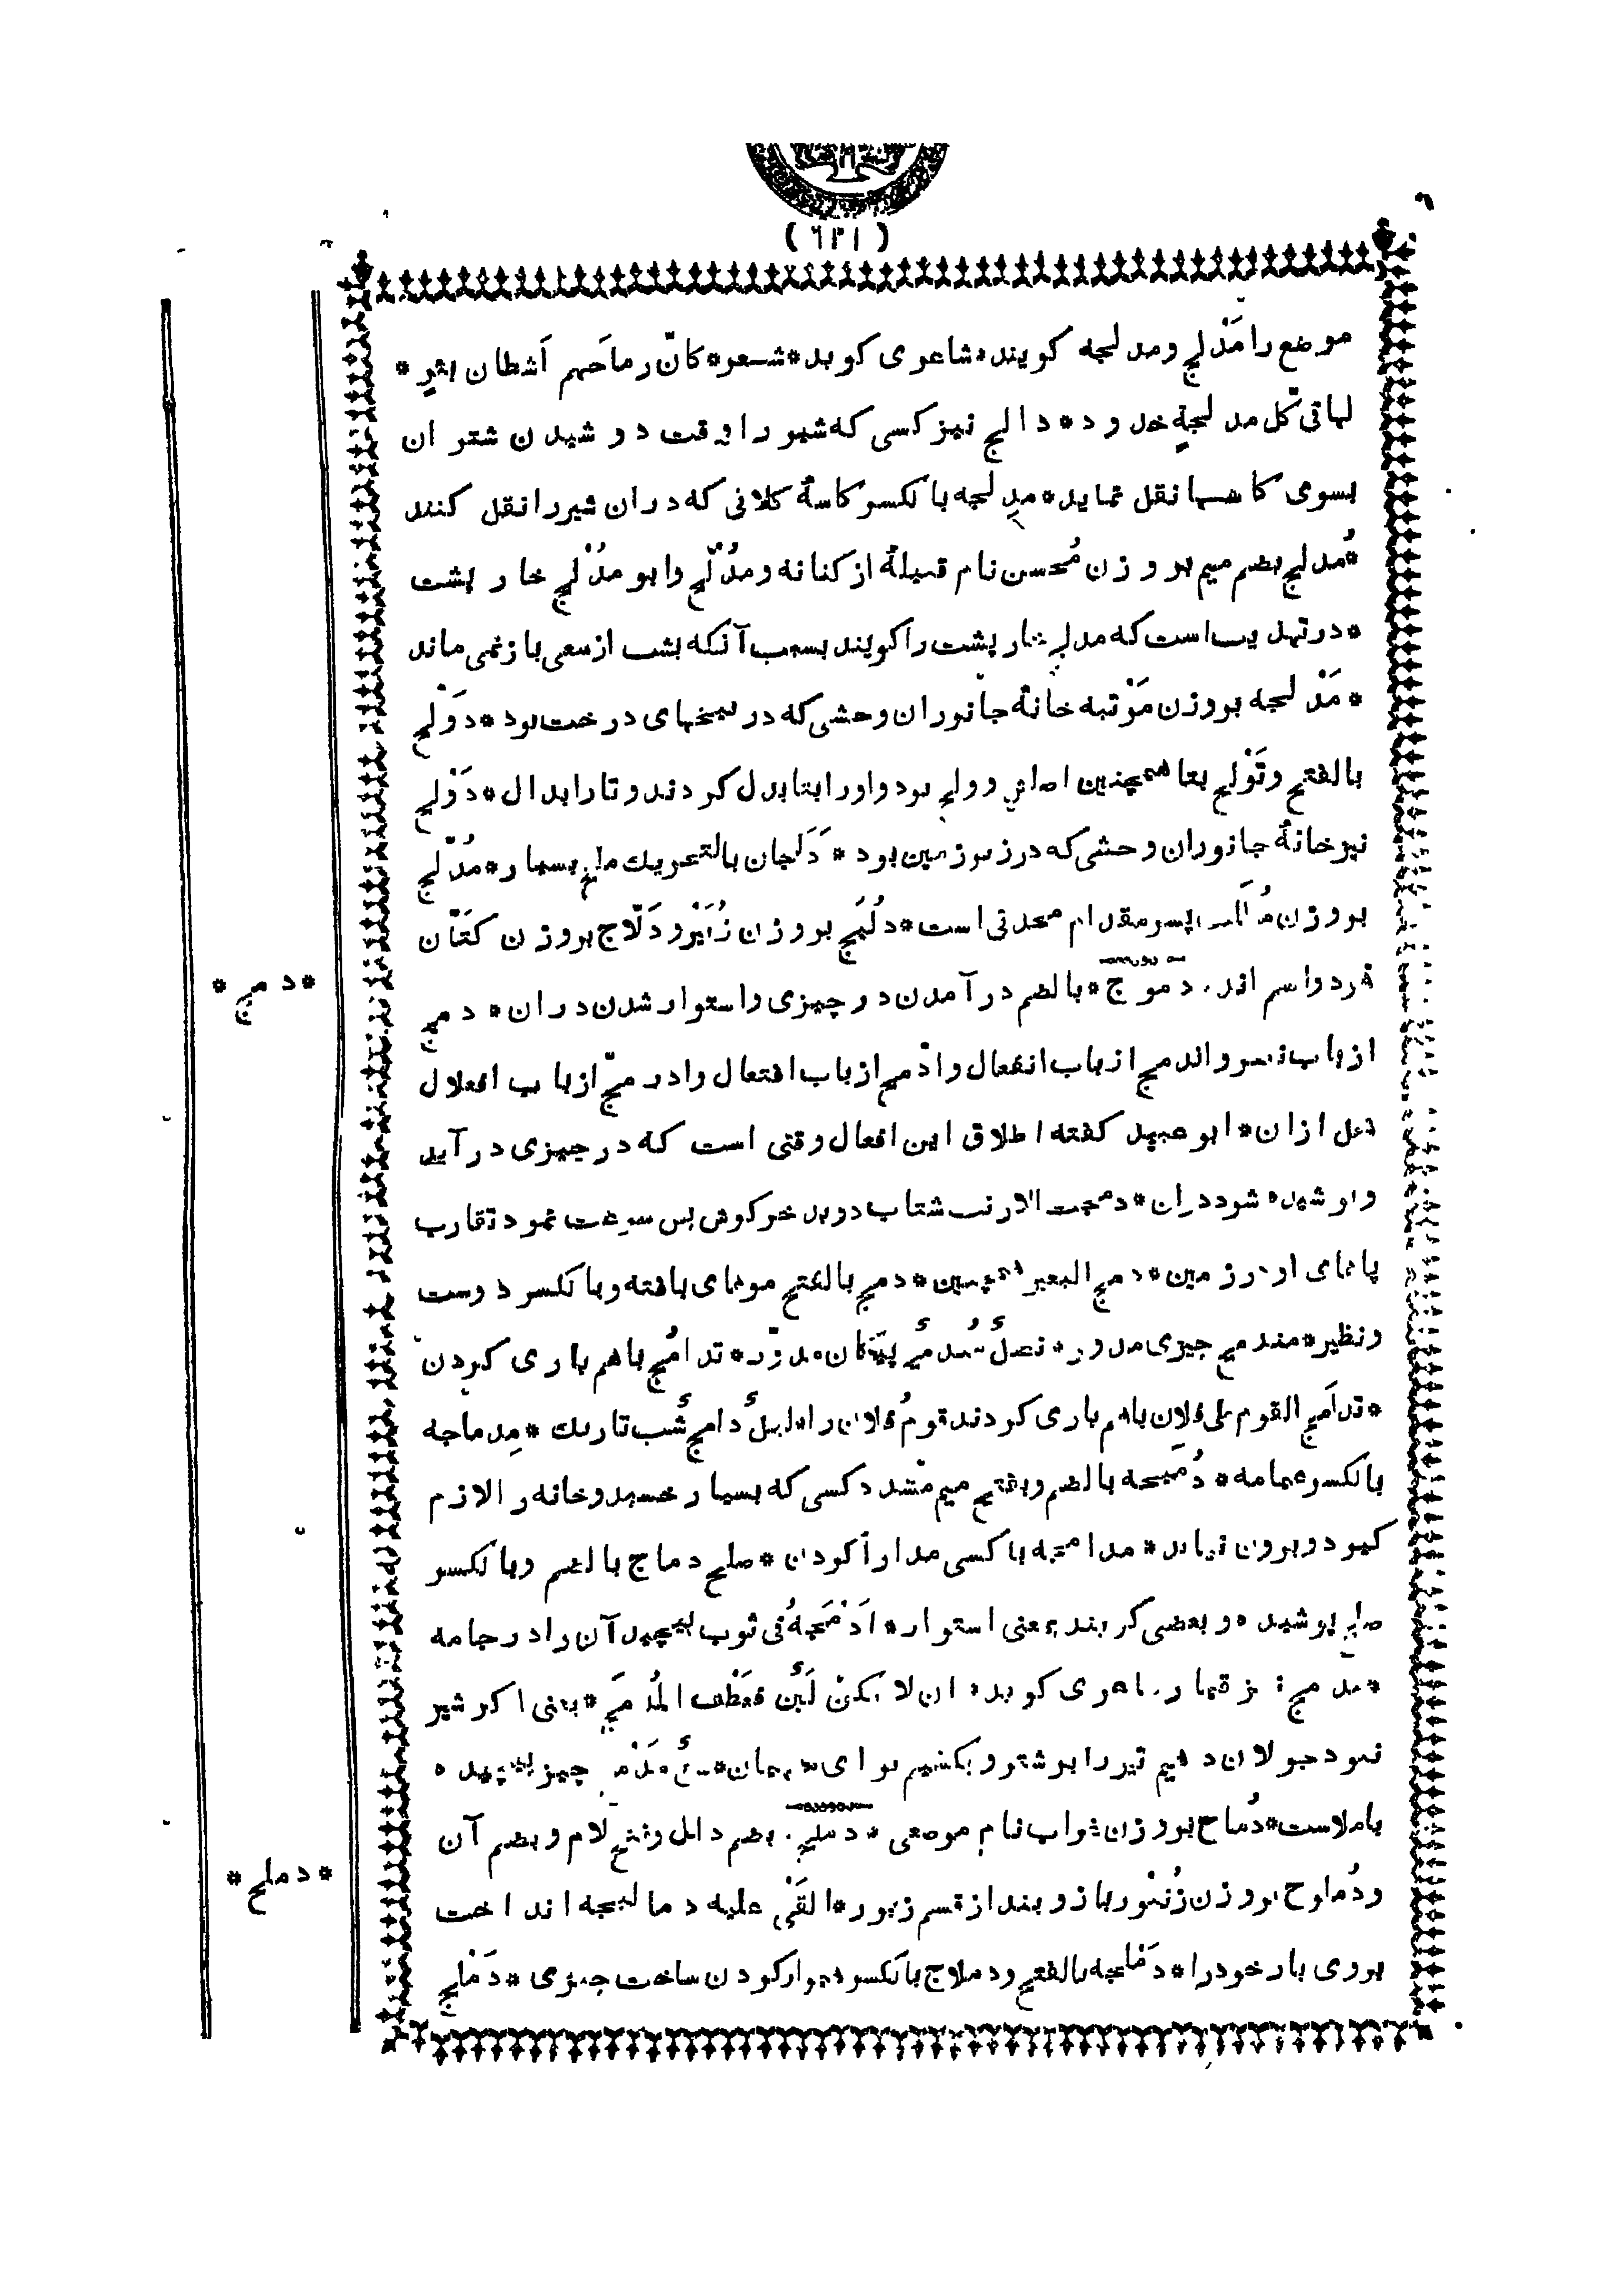 (٦٢١)
موضع را مَدْلَج ومدلجه کویند*شاعری کوید*شعر*کانّ رماحَهم اَشطان بئرٍ*
لها فی کلّ مدلجةٍ خدود*دالج نیز کسی که شیر را وقت دوشیدن شتران
بسوی کاسها نقل نماید*مِدلجه بالکسر کاسهٔ کلانی که دران شیر را نقل کنند
*مُدلج بضم میم بر وزن مُحسن نام قبیلهٔ از کنانه ومُدْلج وابو مدْلج خار پشت
*درتهذیب است که مدلج خار پشت را کویند بسبب آنکه بشب از سعی باز نمی ماند
*مَدْلجه بروزن مَرْتبه خانهٔ جانوران وحشی که در بیخهای درخت بود*دَوْلج
بالفتح وتَوْلج بتا همچنین اصلش وولج بود واو را بتا بدل کردند وتا را بدال*دَوْلج
نیز خانهٔ جانوران وحشی که در زیر زمین بود*دَلَجان بالتحریك ملخ بسیار*مُدّلج
بروزن پسر مقدام محدثی است*دُلَیج بروزن زُبَیْر ودَلّاج بروزن کَتّان
هردو اسم اند. دموج*بالضم در آمدن در چیزی واستوار شدن دران*دمج
*دمج*
از باب نصر واندمج از باب انفعال وادّمج از باب افتعال وادرمجّ از باب افعلال
فعل ازان*ابو عبید کفته اطلاق این افعال وقتی است که در چیزی در آید
وپوشیده شود دران*دمجت الارنب شتاب دوید خرکوش پس سرعت نمود تقارب
پاهای او در زمین*دمج البعیر همچنین*دمج بالفتح مویهای بافته وبالکسر دوست
ونظیر*مندمج چیزی مدور*نصلٌ مُندمجٌ پیکان مدوّر*تدامُج باهم یاری کردن
*تدامَج القوم علی فلان باهم یاری کردند قوم فلان را*لیلٌ دامجٌ شب تاریك*مِدماجه
بالکسر عمامه*دُمیجه بالضم وبفتح میم مشدد کسی که بسیار خسپد وخانه را لازم
کیرد وبرون نیاید*مدامجه با کسی مدارا کردن*صلح دماج بالضم وبالکسر
صلح پوشیده وبعضی کویند بمعنی استوار*اَدْمَجَهُ فی ثوب پیچید آن را در جامه
قمار. شاعری کوید* ان لا یکنْ لَبَنٌ فعَطْف المُدمَج*یعنی اکر شیر
نبود جولان دهیم تیر را بر شتر وبکشیم برای مهمان* چیز پیچیده
باملاست*دُماج بروزن غراب نام موضعی*دملج. بضم دال وفتح لام وبضم آن
*دملج*
ودُملوج بروزن زُنْبور بازو بند از قسم زیور*القَیْ علیه دمالیجه انداخت
بروی بار خود را*دَمْلَجه بالفتح ودملاج بالکسر هموار کردن ساخت چیزی*دَمْلج